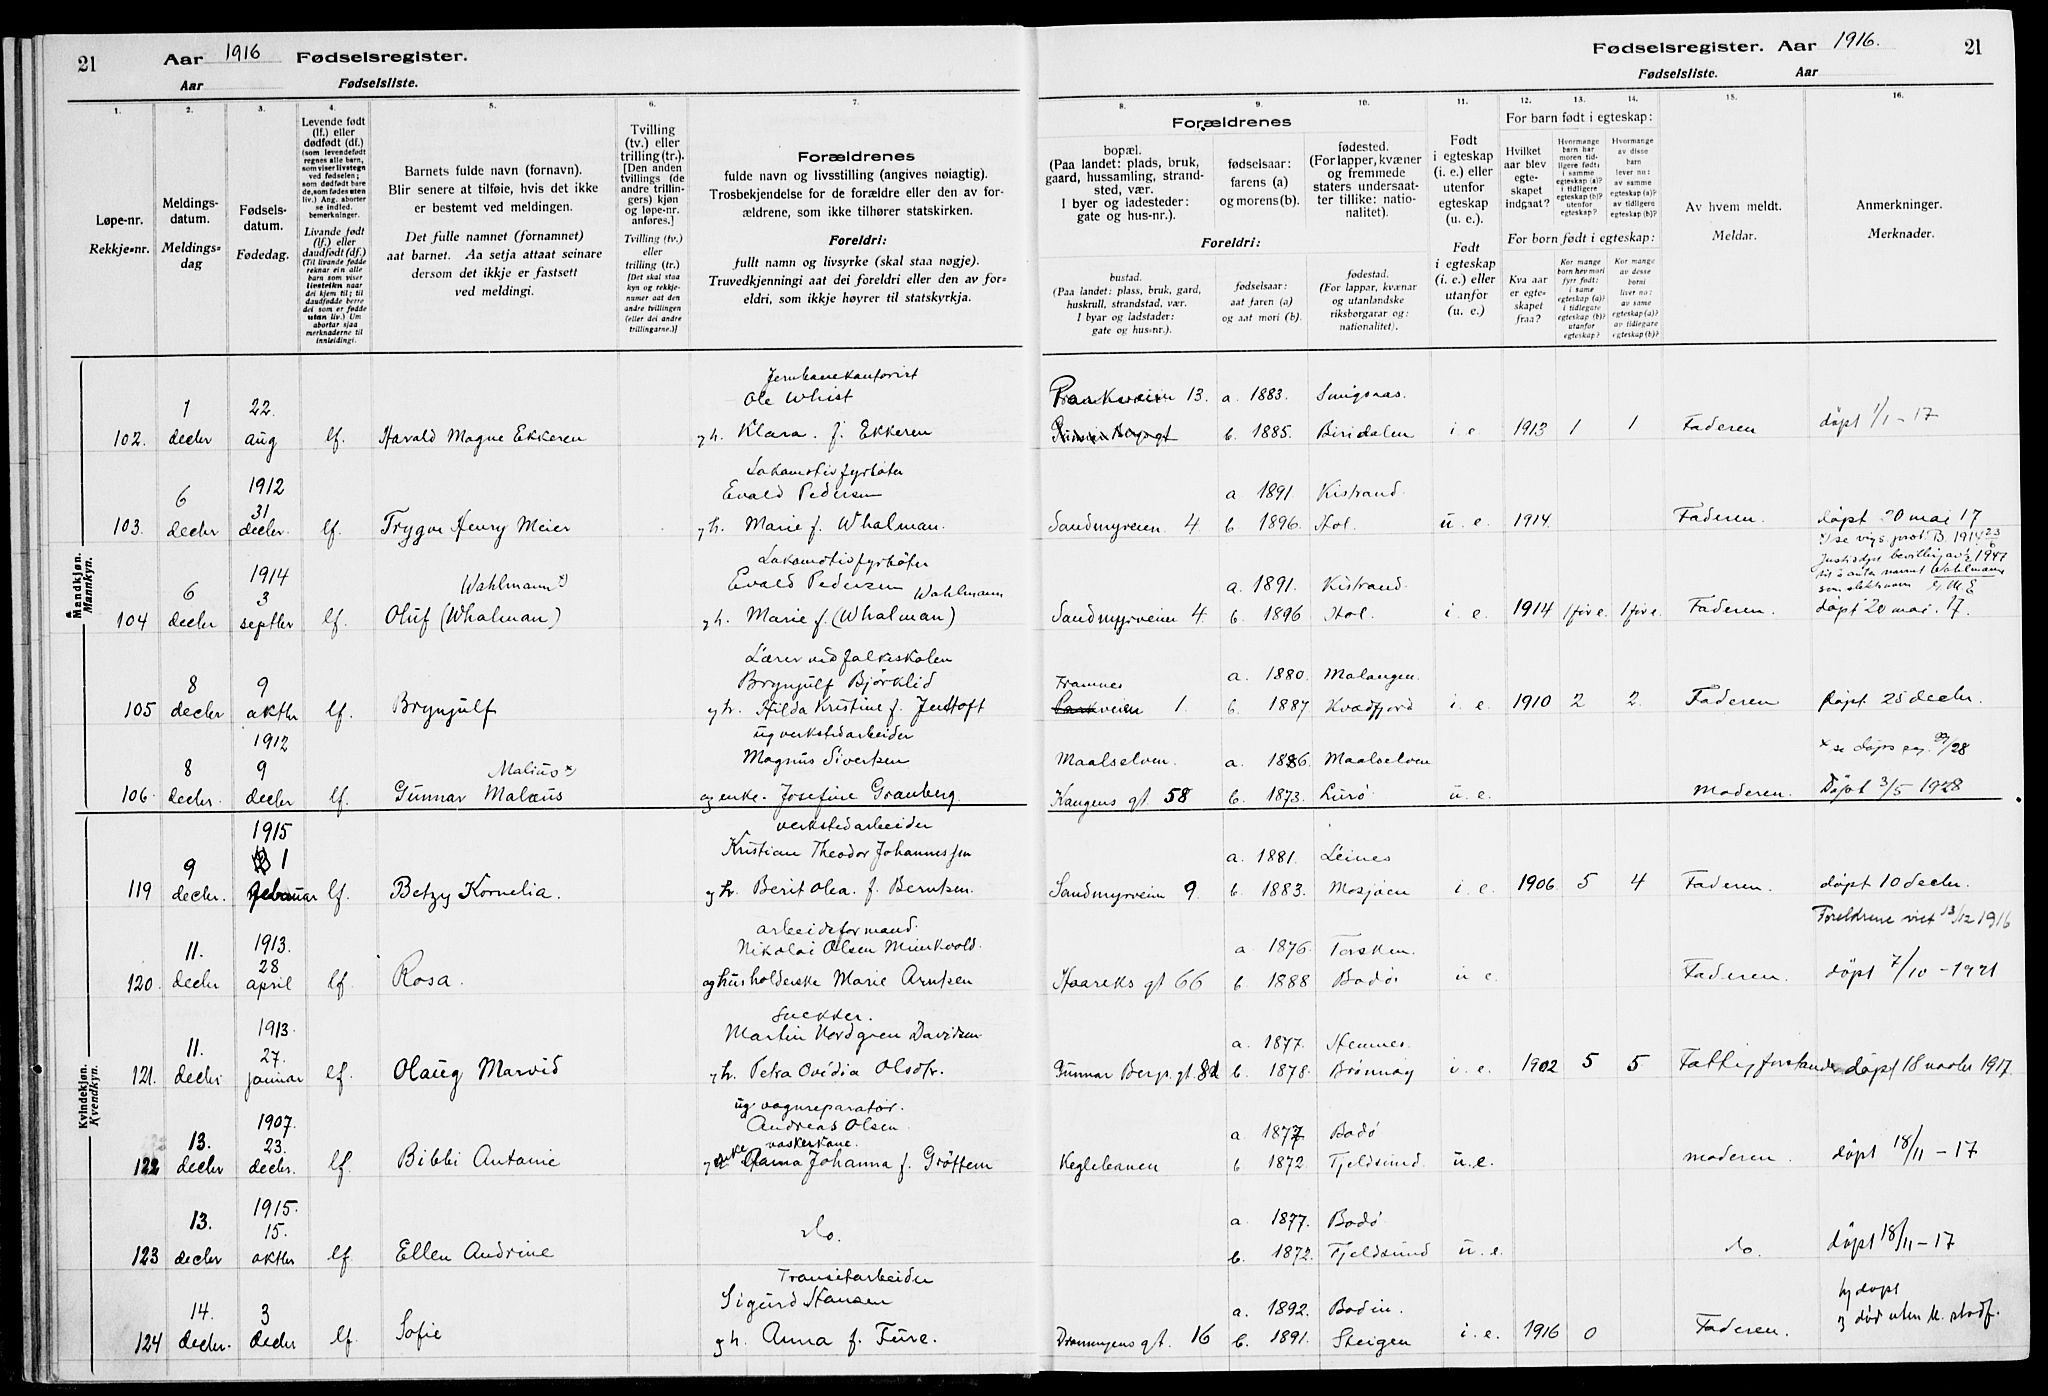 21 Aar 1916 Fødselsregister.
Aar Fødselsliste.
Fødselsregister. Aar 1916. 21
Fødselsliste. Aar
1. 2. 3. 4. 5. 6. 7. 8. 9. 10. 11. 12. 13. 14. 15. 16.
Løpe-nr.
Rekkje-nr.
Meldings-
datum.
Meldings-
dag
Fødsels-
datum.
Fødedag.
Levende født
(lf.) eller
dødfødt (df.)
(som levendefødt
regnes alle barn,
som viser livstegn
ved fødselen;
som dødfødt bare
de, som fødes uten
liv.) Ang. aborter
se indled.
bemerkninger.
Livande født
(lf.) eller
daudfødt (df.)
(Til livande fødde
reknar ein alle
barn som viser
livsteikn naar
dei kjem til; til
daudfødde berre
dei som er fødde
utan liv.) Um
abortar sjaa
merknaderne til
innleidingi.
Barnets fulde navn (fornavn).
Blir senere at tilføie, hvis det ikke
er bestemt ved meldingen.
Det fulle namnet (fornamnet)
aat barnet. Aa setja attaat seinare
dersom det ikkje er fastsett
ved meldingi.
Tvilling
(tv.) eller
trilling (tr.).
[Den anden
tvillings (de
andre trillin-
gers) kjøn
og løpe-nr.
anføres.]
Tvilling (tv.)
eller
trilling (tr.)
[Det skal staa
kyn og rekkje-
numer aat den
andre tvillingen
(eller dei andre
trillingarne.)]
Forældrenes
fulde navn og livsstilling (angives nøiagtig).
Trosbekjendelse for de forældre eller den av for-
ældrene, som ikke tilhører statskirken.
Foreldri:
fullt namn og livsyrke (skal staa nøgje).
Truvedkjenningi aat dei foreldri eller den av for-
eldri, som ikkje høyrer til statskyrkja.
Forældrenes
bopæl.
(Paa landet: plads, bruk,
gaard, hussamling, strand-
sted, vær.
I byer og ladesteder:
gate og hus-nr.).
fødselsaar:
farens (a)
og morens (b).
fødested.
(For lapper, kvæner
og fremmede
staters undersaat-
ter tillike: natio-
nalitet).
Foreldri:
bustad.
(Paa landet: plass, bruk, gard,
huskrull, strandstad, vær.
I byar og ladstader:
gate og hus-nr.).
fødselsaar:
aat faren (a)
og aat mori (b).
fødestad.
(For lappar, kvænar
og utanlandske
riksborgarar og:
nationalitet).
Født
i egteskap
(i. e.) eller
utenfor
egteskap
(u. e.).
Født
i egteskap
(i. e.) eller
utanfor
(u. e.)
For barn født i egteskap:
Hvilket
aar blev
egte-
skapet
indgaat?
Hvormange
barn har
moren tid-
ligere født:
i samme
egteskap (a)?
i tidligere
egteskap (b)?
utenfor
egteskap?
Hvormange
av disse
barn
lever nu:
av samme
egteskap (a)?
av tidligere
egteskap (b)?
For born født i egteskap:
Kva aar
er egte-
skapet
fraa?
Kor mange
born hev mori
fyrr født:
i same
egteskap (a)?
i tidlegare
egteskap (b)?
utanfor
egteskap?
Kor mange
av desse
borni
liver no:
av same
egteskap (a)?
av tidlegare
egteskap (b)?
Av hvem meldt.
Meldar.
Anmerkninger.
Merknader.
Mandkjøn.
Mannkyn.
Jernbanekontorist
1 22. Ole Whist Parkveien 13. a. 1883.
102. decbr aug lf. Harald Magne Ekkeren g h. Klara f. Ekkeren b. 1885. Biridalen i. e. 1913 1 1 Faderen døpt 1/1 - 17
Lokomotivfyrbøter
6 1912 31 Evald Pedersen a 1891. Kistrand.
103. decbr decbr. lf. Trygve Henry Meier g h. Marie f. Whalman. Sandmyrveien 4 b. 1896. Hol. u. e. 1914. Faderen. døpt 20 mai 17
se vigs. prot. B. 1914 23/6
Lokomotivfyrbøter
6 1914 3 Wahlmann x) Evald Pedersen Wahlmann a. 1891. Kistrand.
104 decbr septbr lf. Oluf (Whalman) g h. Marie f. (Whalman) Sandmyrveien 4. b. 1896 Hol. i. e. 1914 1 før e. 1 før e. Faderen. døpt 20 mai. 17.
Lærer ved folkeskolen
8 9 Brynjulf Bjørklid Framnes a. 1880. Malangen.
105 decbr oktbr lf. Brynjulf g h. Hilda Kristine f. Jentoft veien 1. b. 1887 Kvædfjord i. e. 1910 2 2. Faderen døpt 25 decbr.
ug verkstedarbeider
8 1912 9 Malius x) Magnus Sivertsen Maalselven. a. 1886. Maalselven x se døps
106. decbr. decbr lf. Gunnar Malæus og enke. Josefine Granberg. Kongens gt 58 b. 1873. Lurø. u. e. Moderen. Døbt 3/5 1928
Kvindekjøn.
Kvendkyn.
verkstedarbeider
9 1915 1 Kristian Theodor Johannessen a. 1881. Leines
119 decbr. februar lf. Betzy Kornelia. g h. Berit Olea. f. Berntsen. Sandmyrveien 9. b. 1883. Mosjøen i. e. 1906 5 4 Faderen. døpt 10 decbr.
arbeidsformand. Foreldrene viet 13/12 1916
11. 1913. 28 Nikolai Olsen Mierkvold. a. 1876. Torsken.
120. decbr april lf. Rosa. og husholderske Marie Arntsen Haareks gt 66 b. 1888 Bodø. u e. Faderen. døpt 7/10 - 1921
Snekker.
11. 1913. 27. Martin Nordgren Davidsen a. 1877. Hemnes.
121. decbr januar lf. Olaug Marvid g h. Petra Ovidia Olsdtr. Gunnar Bergs gt 8d b. 1878. Brønnøy i. e. 1902 5 5 Fattigforstander døpt 18 novbr 1917.
ug vognreparatør.
13. 1907. 23. Andreas Olsen. a. 1877 Bodø
122 decbr decbr. lf. Bibbi Antonie g enke vaskekone. Anna Johanna f. Grøttem Keglebanen b. 1872. Tjeldsund. u. e. moderen. døpt 18/11 - 17
13. 1915. 15. do. a. 1877. Bodø
123 decbr oktbr lf. Ellen Andrine b. 1872. Tjeldsund u. e. do. døpt 18/11 - 17
Transitarbeider
14. 3 Sigurd Hansen a. 1892. Bodin.
124 decbr. decbr lf. Sofie g h. Anna f. Fure. Dronningens gt. 16 b. 1891. Steigen i. e. 1916 0 Faderen. hj døpt